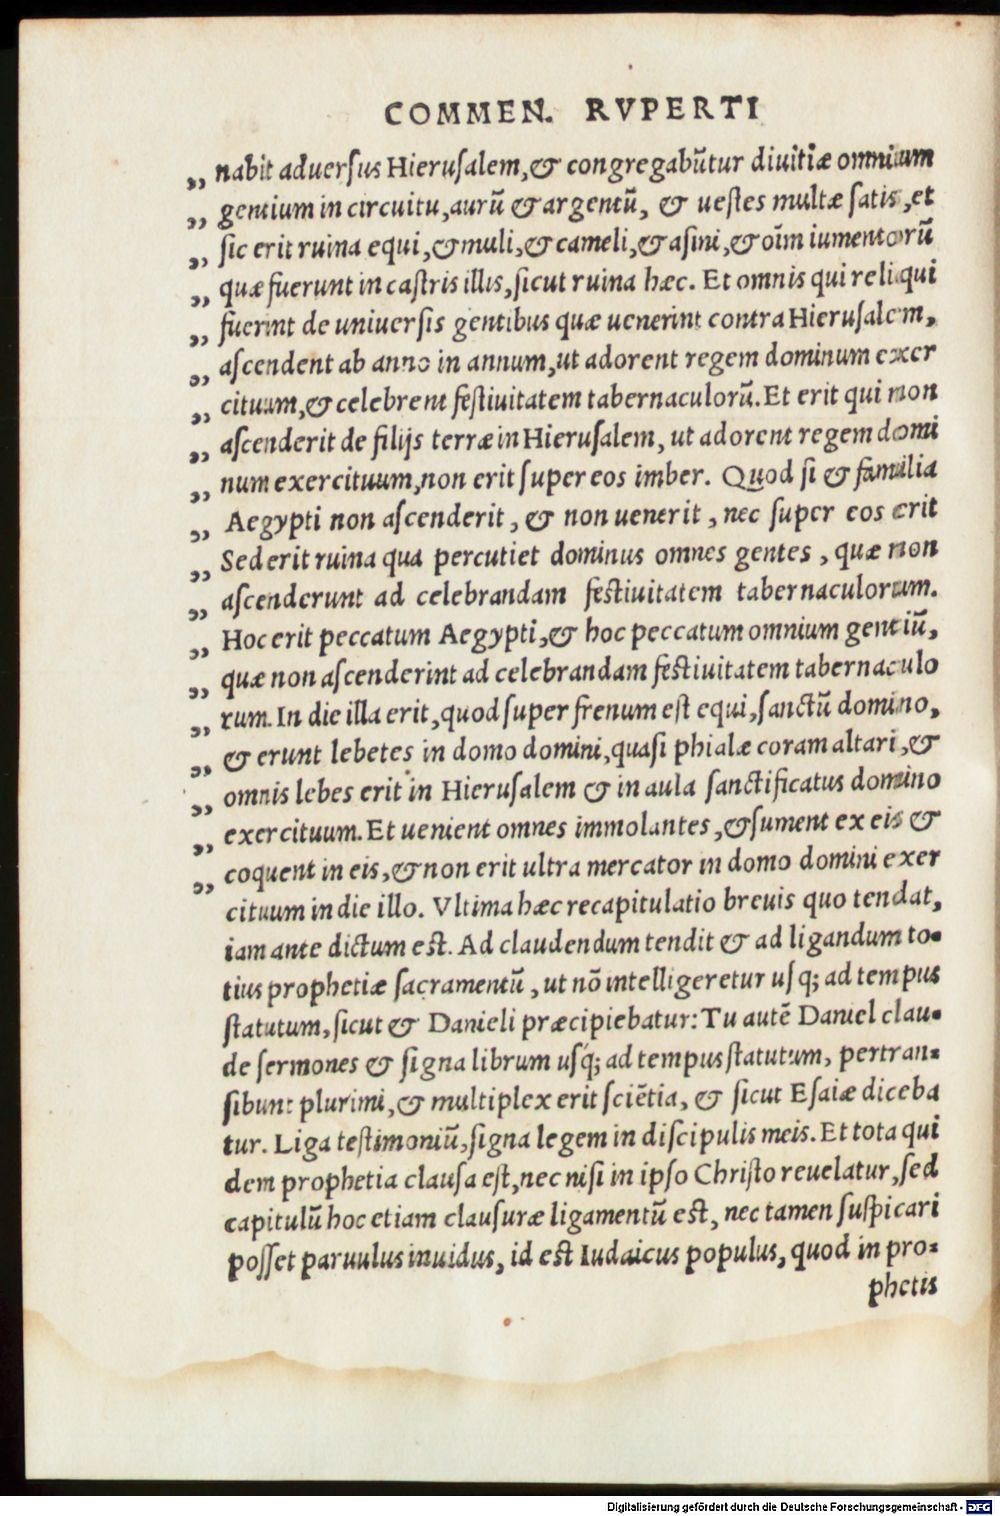 COMMEN. RVPERTI
„ nabit aduersus Hierusalem,& congregabũtur diuitiæ omnium
„ gentium in circuitu,aurũ & argentũ, & uestes multæ satis,et
„ sic erit ruina equi,& muli,& cameli,& asini,& oĩm iumentorũ
„ quæ fuerunt in castris illis,sicut ruina hæc. Et omnis qui reliqui
„ fuerint de uniuersis gentibus quæ uenerint contra Hierusalem,
„ ascendent ab anno in annum,ut adorent regem dominum exer
„ cituum,& celebrent festiuitatem tabernaculorũ. Et erit qui non
„ ascenderit de filijs terræ in Hierusalem, ut adorent regem domi
„ num exercituum,non erit super eos imber. Quod si & familia
„ Aegypti non ascenderit, & non uenerit, nec super eos erit
„ Sed erit ruina qua percutiet dominus omnes gentes, quæ non
„ ascenderunt ad celebrandam festiuitatem tabernaculorum.
„ Hoc erit peccatum Aegypti,& hoc peccatum omnium gentiũ,
„ quæ non ascenderint ad celebrandam festiuitatem tabernaculo
„ rum. In die illa erit,quod super frenum est equi,sanctũ domino,
„ & erunt lebetes in domo domini,quasi phialæ coram altari,&
„ omnis lebes erit in Hierusalem & in aula sanctificatus domino
„ exercituum. Et uenient omnes immolantes,& sument ex eis &
„ coquent in eis,& non erit ultra mercator in domo domini exer
cituum in die illo. Vltima hæc recapitulatio breuis quo tendat,
iam ante dictum est. Ad claudendum tendit & ad ligandum to-
tius prophetiæ sacramentũ, ut nõ intelligeretur usq; ad tempus
statutum,sicut & Danieli præcipiebatur: Tu autẽ Daniel clau-
de sermones & signa librum usq́; ad tempus statutum, pertran-
sibunt plurimi,& multiplex erit sciẽtia, & sicut Esaiæ diceba
tur. Liga testimoniũ,signa legem in discipulis meis. Et tota qui
dem prophetia clausa est,nec nisi in ipso Christo reuelatur,sed
capitulũ hoc etiam clausuræ ligamentũ est, nec tamen suspicari
posset paruulus inuidus, id est Iudaicus populus, quod in pro-
phetis
Digitalisierung gefördert durch die Deutsche Forschungsgemeinschaft - DFG